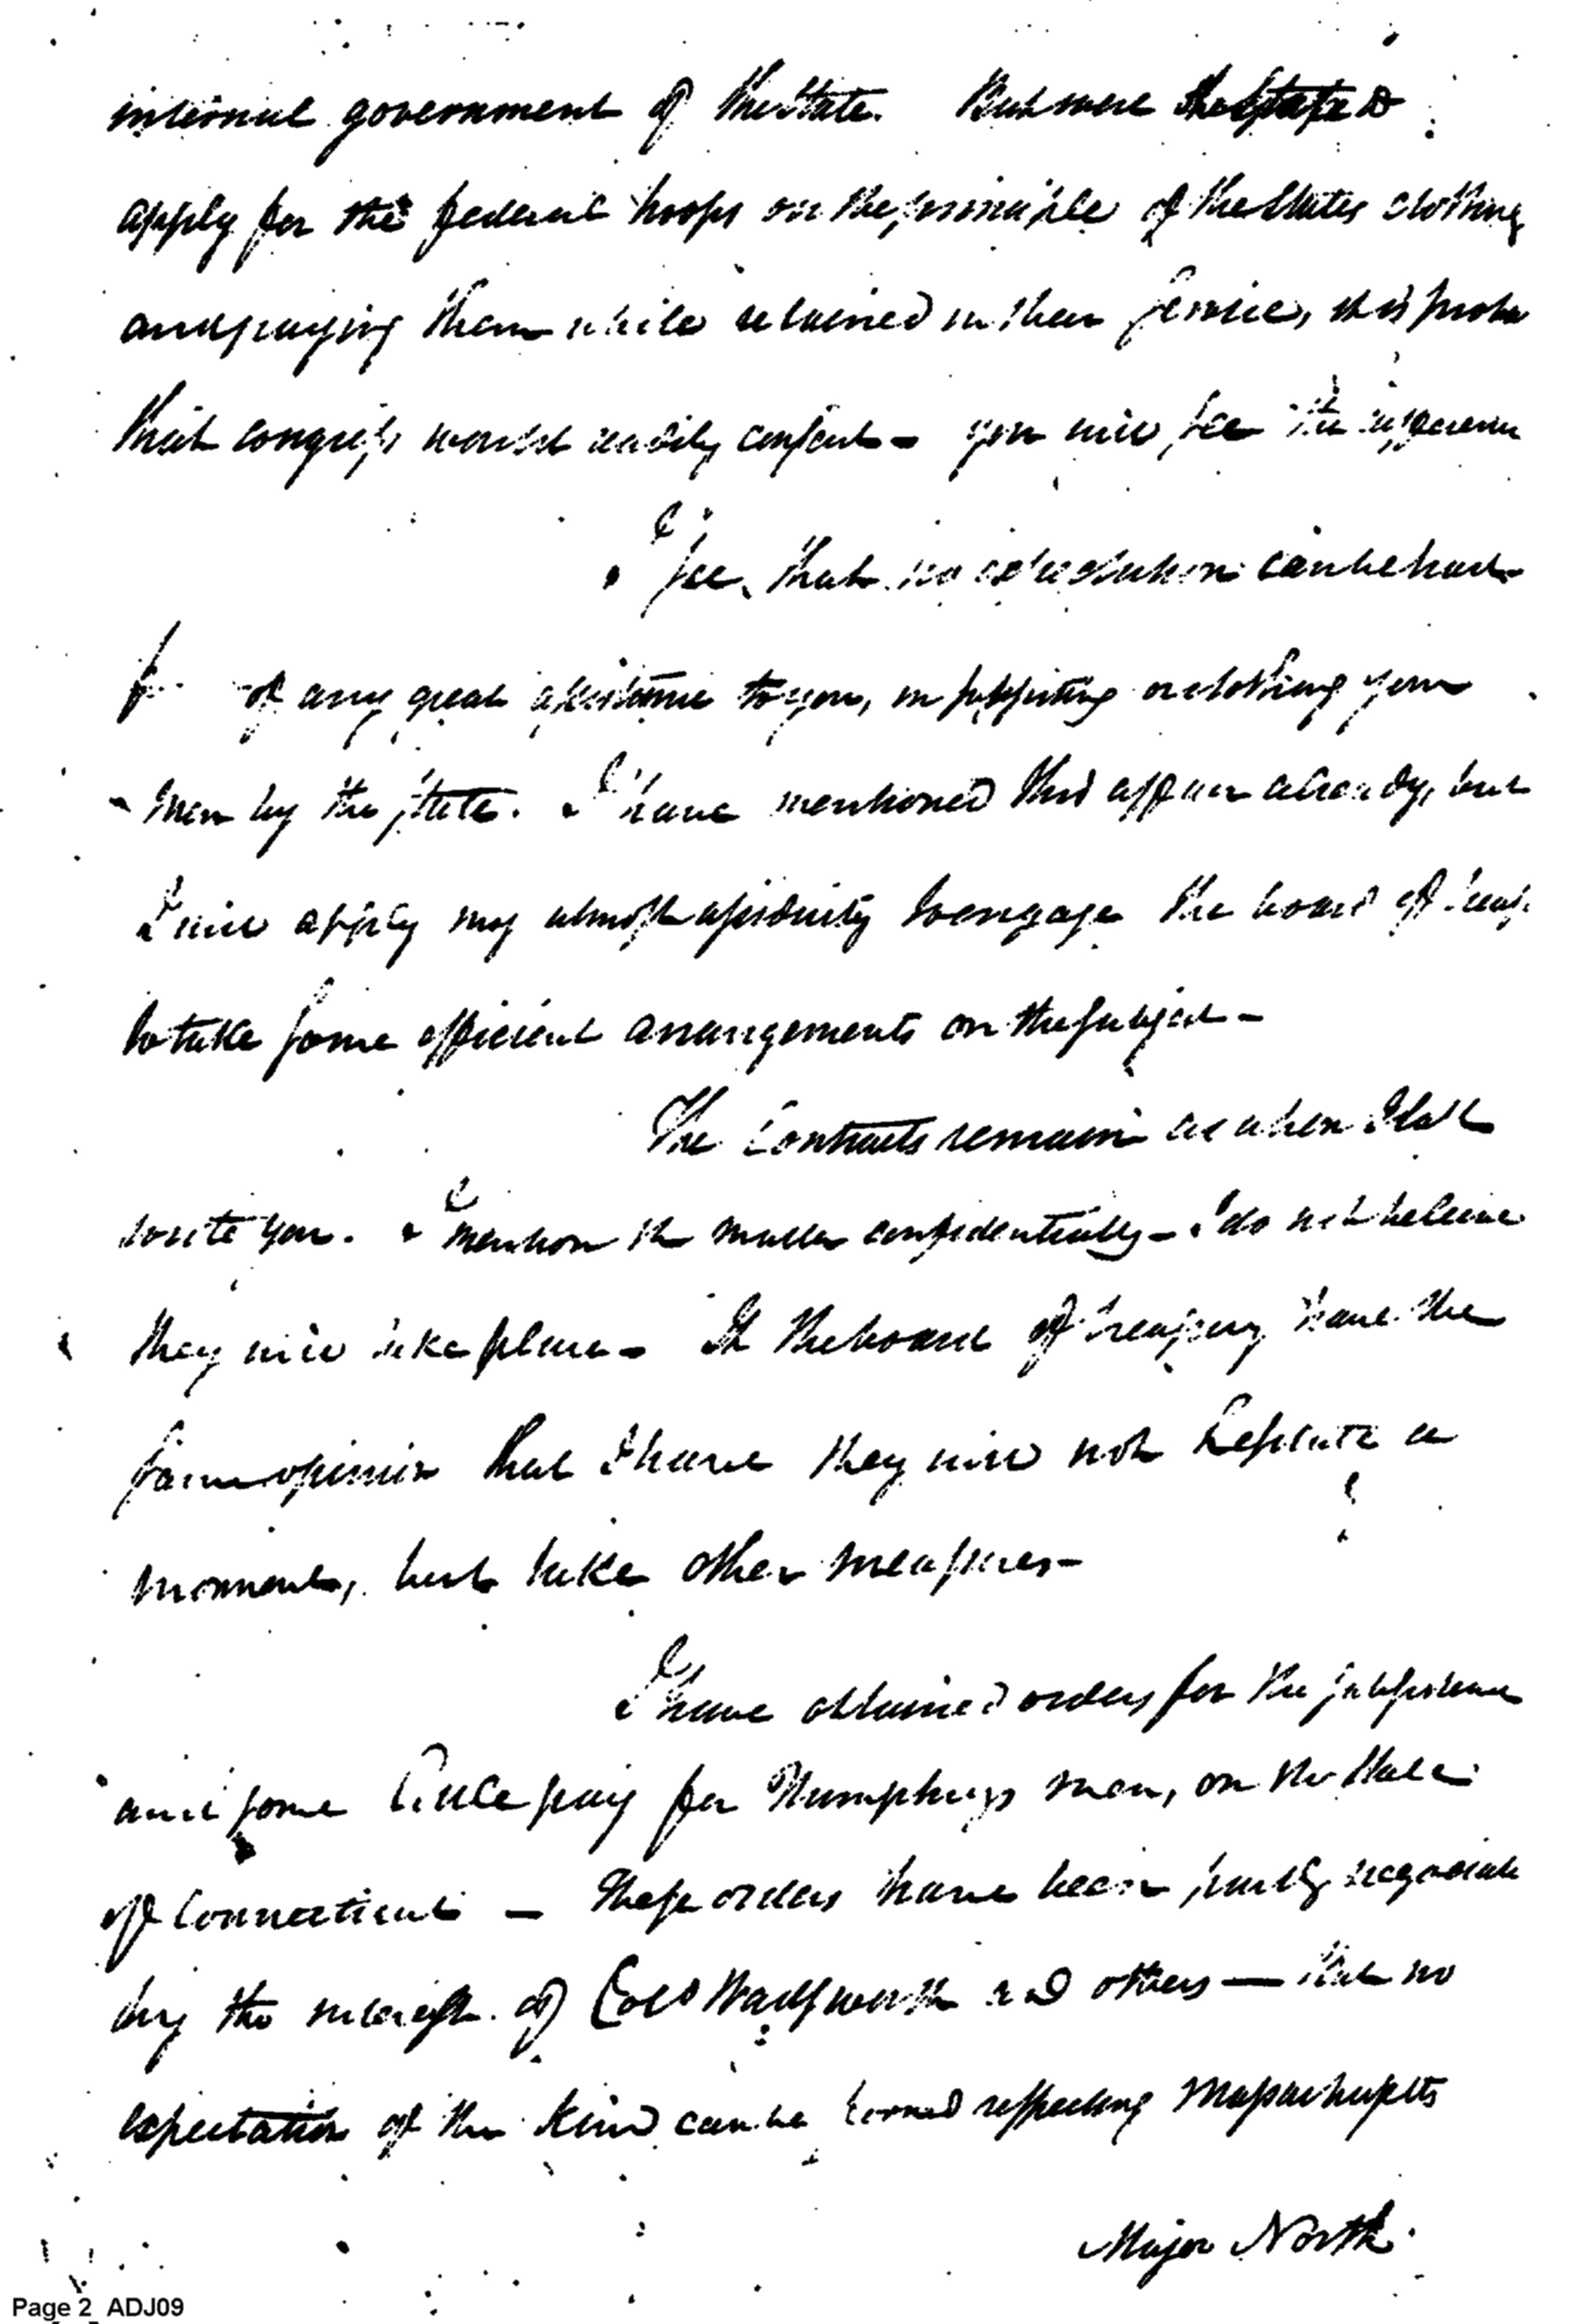 internal government of the State. But were the State to
apply for the federal troops on the principle of the States clothing
and paying them while retained in their service, it is proba
that congress would readily consent — you will see the
I see, that no can be had
of any great assistance to you, in supporting or clothing your
men by the state. I have mentioned this affair already, but
I will apply my utmost assiduity to engage the board of treas
to take some efficient arrangements on the subject —
The Contracts remain as when I last
wrote you. I mention the matter confidentially — I do not believe
they will take place — If the board of treasury have the
same opinion that I have they will not hesitate a
moment, but take other measures —
I have obtained orders for the subsistence
and some little pay for Humphreys men, on the State
of Connecticut — These orders have been partly negociat
by the interest of Colo Wadsworth and others — But no
expectation of this kind can be formed respecting Massachusetts
Major North
Page 2 ADJ09